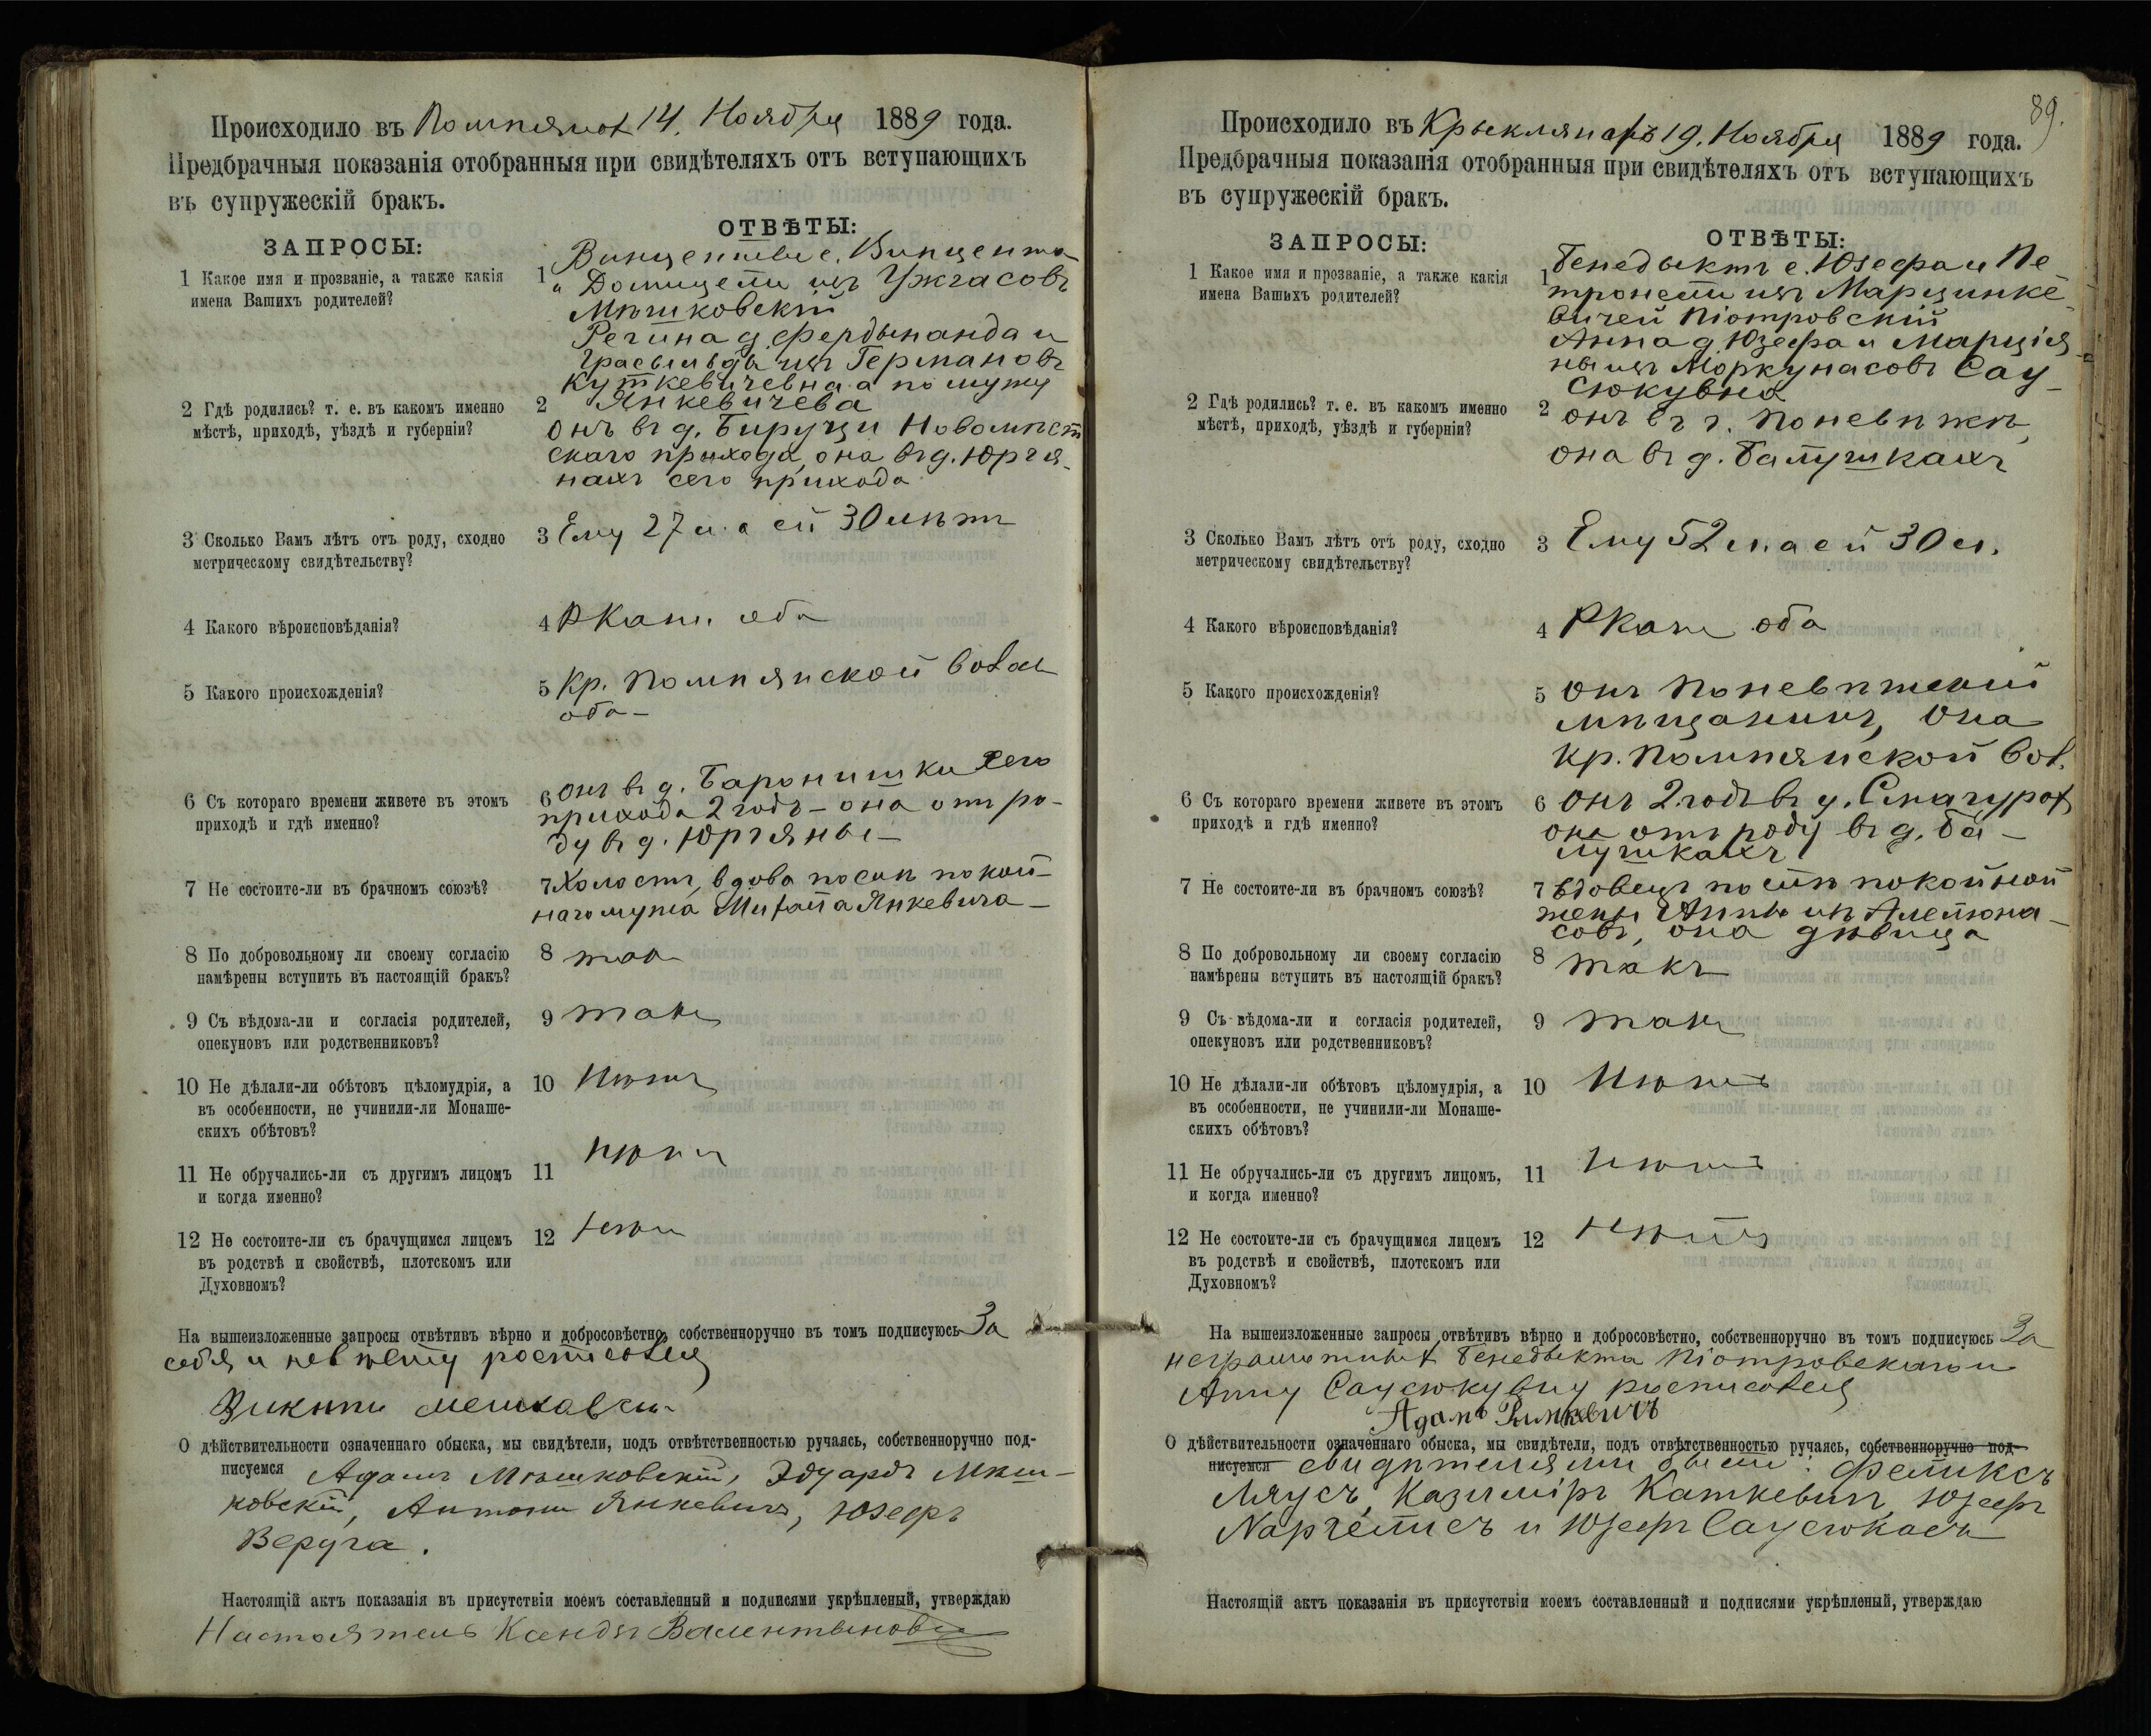 Происходило въ Помпянах 14. Ноября 1889 года.
Предбрачныя показанія отобранныя при свидѣтеляхъ отъ вступающихъ
въ супружескій бракъ.
ЗАПРОСЫ:
ОТВѢТЫ:
1 Какое имя и прозваніе, а также какія
имена Вашихъ родителей?
1 Винцентій с. Винцента
и Домицели изъ Ужгасовъ
Мѣшковскій
Регина д. Фердынанда и
Грасыльды изъ Германовъ
Куткевичевна а по мужу
Янкевичева
2 Гдѣ родились? т. е. въ какомъ именно
мѣстѣ, приходѣ, уѣздѣ и губерніи?
2
онъ въ д. Бируци Новомѣст
скаго прихода, она въ д. Юргя-
нахъ сего прихода
3 Сколько Вамъ лѣтъ отъ роду, сходно
метрическому свидѣтельству?
3 Ему 27 л. а ей 30 лѣтъ
4 Какого вѣроисповѣданія?
4 РКат. оба
5 Какого происхожденія?
5 Кр. Помпянской вол.
оба —
6 Съ котораго времени живете въ этомъ
приходѣ и гдѣ именно?
6 онъ въ д. Баронишки сего
прихода 2 годъ — она отъ ро-
ду въ д. Юргяны —
7 Не состоите-ли въ брачномъ союзѣ?
7 Холостъ, вдова послѣ покой-
наго мужа Михаила Янкевича —
8 По добровольному ли своему согласію
намѣрены вступить въ настоящій бракъ?
8 такъ
9 Съ вѣдома-ли и согласія родителей,
опекуновъ или родственниковъ?
9 такъ
10 Не дѣлали-ли обѣтовъ цѣломудрія, а
въ особенности, не учинили-ли Монаше-
скихъ обѣтовъ?
10 Нѣтъ
11 Не обручались-ли съ другимъ лицомъ
и когда именно?
11 Нѣтъ
12 Не состоите-ли съ брачущимся лицемъ
въ родствѣ и свойствѣ, плотскомъ или
Духовномъ?
12 Нѣтъ
На вышеизложенные запросы отвѣтивъ вѣрно и добросовѣстно, собственноручно въ томъ подписуюсь За
себя и невѣсту росписался
О дѣйствительности означеннаго обыска, мы свидѣтели, подъ отвѣтственностью ручаясь, собственноручно под-
писуемся Адамъ Мѣшковскій, Эдуардъ Мѣш-
ковскій, Антони Янкевичъ, Юзефъ
Веруга.
Настоящій актъ показанія въ присутствіи моемъ составленный и подписями укрѣпленый, утверждаю
Настоятель Ксендзъ Валентыновичъ
89.
Происходило въ Крыклянахъ 19. Ноября 1889 года.
Предбрачныя показанія отобранныя при свидѣтеляхъ отъ вступающихъ
въ супружескій бракъ.
ЗАПРОСЫ:
ОТВѢТЫ:
1 Какое имя и прозваніе, а также какія
имена Вашихъ родителей?
1 Бенедыктъ с. Юзефа и Пе
тронели изъ Марцинке-
вичей Піотровскій
Анна д. Юзефа и Марція-
ны изъ Моркунасовъ Сау-
сюкувна
2 Гдѣ родились? т. е. въ какомъ именно
мѣстѣ, приходѣ, уѣздѣ и губерніи?
2 онъ въ г. Поневѣжѣ,
она въ д. Балушкахъ
3 Сколько Вамъ лѣтъ отъ роду, сходно
метрическому свидѣтельству?
3 Ему 52 л. а ей 30 л.
4 Какого вѣроисповѣданія?
4 РКат оба
5 Какого происхожденія?
5 онъ Поневѣжскій
мѣщанинъ, Она
кр. Помпянской вол.
6 Съ котораго времени живете въ этомъ
приходѣ и гдѣ именно?
6 онъ 2. годъ въ у. Смагурах
она отъ роду въ д. Ба-
лушкахъ
7 Не состоите-ли въ брачномъ союзѣ?
7 Вдовецъ послѣ покойной
жены Анны изъ Алейюна-
совъ, она дѣвица
8 По добровольному ли своему согласію
намѣрены вступить въ настоящій бракъ?
8 такъ
9 Съ вѣдома-ли и согласія родителей,
опекуновъ или родственниковъ?
9 такъ
10 Не дѣлали-ли обѣтовъ цѣломудрія, а
въ особенности, не учинили-ли Монаше-
скихъ обѣтовъ?
10 Нѣтъ
11 Не обручались-ли съ другимъ лицомъ,
и когда именно?
11 Нѣтъ
12 Не состоите-ли съ брачущимся лицемъ
въ родствѣ и свойствѣ, плотскомъ или
Духовномъ?
12 Нѣтъ
На вышеизложенные запросы отвѣтивъ вѣрно и добросовѣстно, собственноручно въ томъ подписуюсь За
неграмотных Бенедыкта Піотровскаго и
Анну Саусюкувну росписался
Адамъ Римкевичъ
О дѣйствительности означеннаго обыска, мы свидѣтели, подъ отвѣтственностью ручаясь, собственноручно под-
писуемся свидѣтелями были: Феликсъ
Ляусъ, Казимиръ Каткевич, Юзефъ
Наргелисъ и Юзефъ Саусюкасъ
Настоящій актъ показанія въ присутствіи моемъ составленный и подписями укрѣпленый, утверждаю